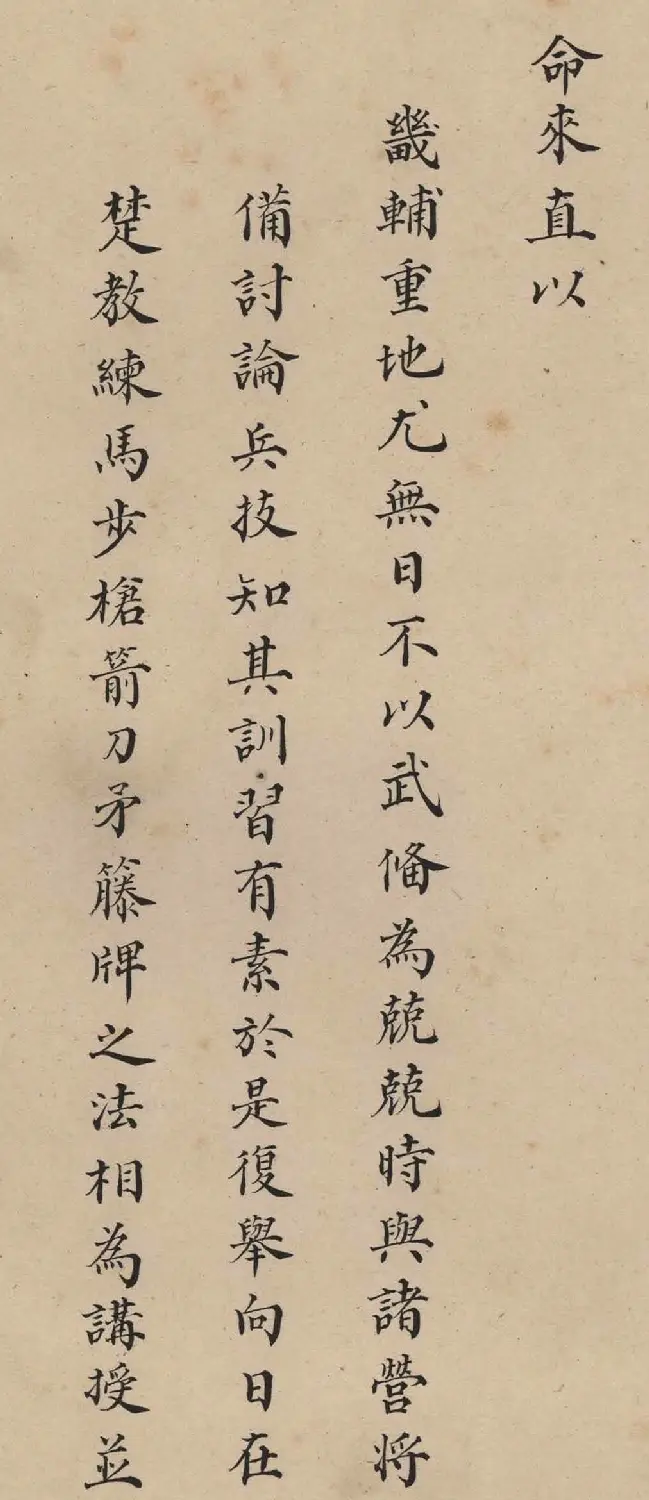 命來直以
畿輔重地尤無日不以武俻為兢兢時與諸營將
備討論兵技知其訓習有素於是復舉向日在
楚教練馬步槍箭刀矛籐牌之法相為講授並